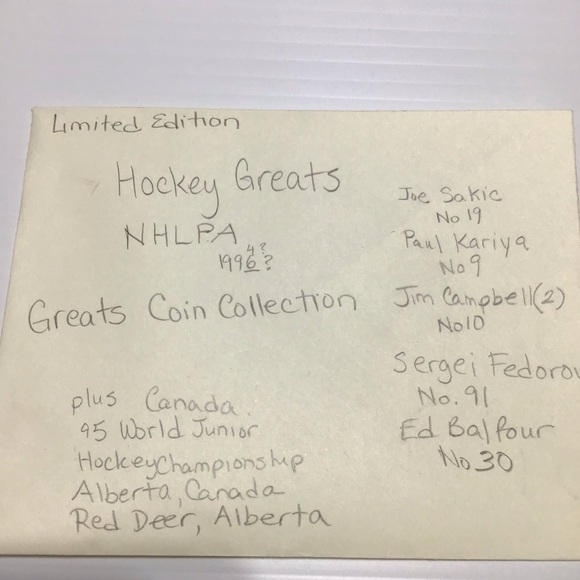 Limited Edition
Hockey Greats
NHLPA
4?
1996?
Greats Coin Collection
plus Canada.
95 World Junior
Hockey Championship
Alberta, Canada
Red Deer, Alberta
Joe Sakic
No 19
Paul Kariya
No 9
Jim Campbell (2)
No 10
Sergei Fedorov
No. 91
Ed Balfour
No 30